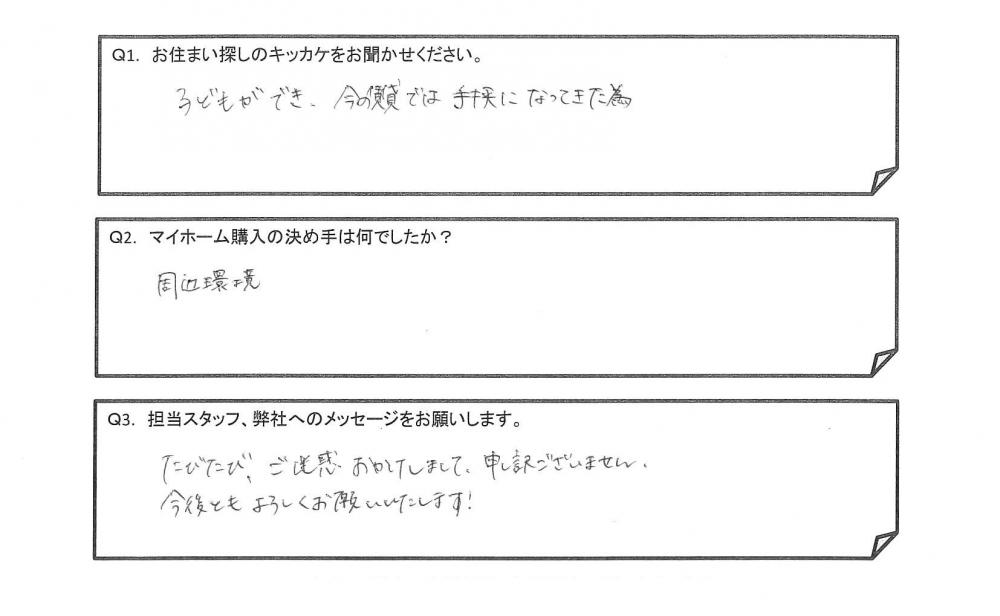 Q1. お住まい探しのキッカケをお聞かせください。
子どもができ、今の賃貸では手狭になってきた為
Q2. マイホーム購入の決め手は何でしたか？
周辺環境
Q3. 担当スタッフ、弊社へのメッセージをお願いします。
たびたび、ご迷惑おかけしまして、申し訳ございません。
今後ともよろしくお願いいたします!